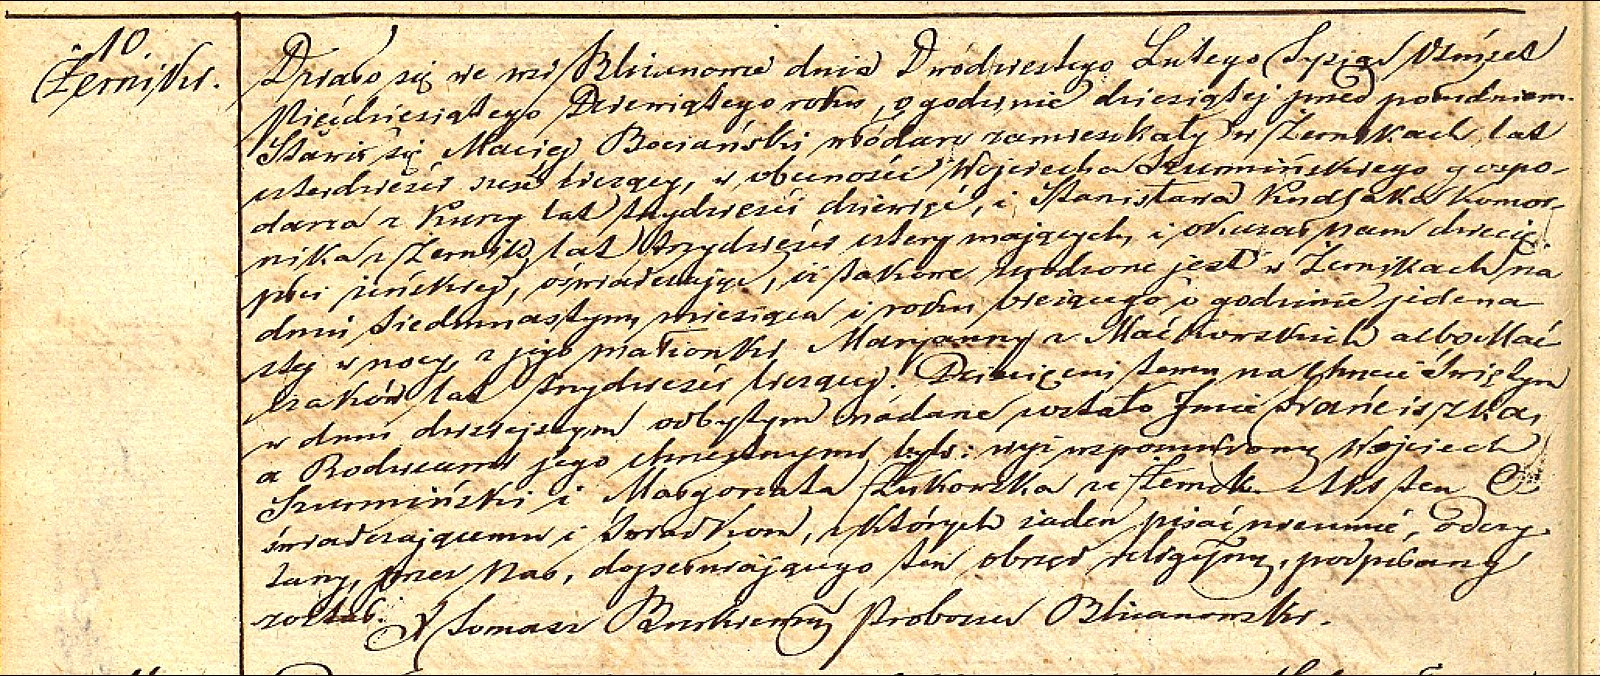 10.
Żerniki.
Działo się we wsi Blizanowie dnia Dwódziestego Lutego Tysiąc Ośmset
Pięćdziesiątego Dziewiątego roku, o godzinie dziesiątej przed południem.
Stawił się Maciej Bociański włódarz zamieszkały w Żernikach lat
czterdzieści sześć liczący, w obecności Wojciecha Szurmińskiego gospo-
darza z Kurzy lat trzydzieści dziewięć, i Stanisława Kudłaka Komor-
nika z Żernik lat trzydzieści cztery mających, i okazał nam dziecię
płci żeńskiej, oświadczając, iż takowe urodzone jest w Żernikach na
dniu siedmnastym miesiąca i roku bieżącego o godzinie jedena-
stej w nocy, z jego małżonki Marjanny z Maćkowskich albo Mać-
czaków lat trzydzieści liczącej. Dziecięciu temu na Chrzcie Świętym
w dniu dzisiejszym odbytym nadane zostało Imie Franciszka,
a Rodzicami jego chrzestnymi byli: wyż wspomniony Wojciech
Szurmiński i Małgorzata Żukowska ze Żernik. Akt ten O-
świadczającemu i Świadkom, z których żaden pisać nieumié, odczy-
tany, przez Nas, dopełniającego ten obrzęd religijny, podpisany
został. X Tomasz Burkiewicz Proboszcz Blizanowski.